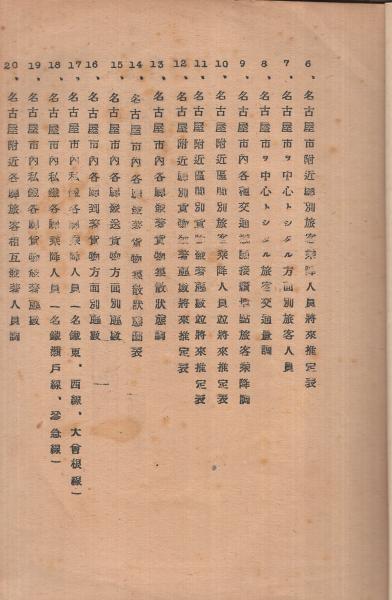 6、名古屋市附近驛別旅客乘降人員將來推定表
7、名古屋市ヲ中心トシタル方面別旅客人員
8、名古屋市ヲ中心トシタル旅客交通量調
9、名古屋市內各種交通機關接續地點旅客乘降調
10、名古屋市附近區間別旅客乘降人員竝將來推定表
11、名古屋市附近區間別貨物發著噸數竝將來推定表
12、名古屋市附近驛別貨物發著噸數將來推定表
13、名古屋市內各驛發著貨物集散狀態調
14、名古屋市內各驛發著貨物集散狀態圖表
15、名古屋市內各驛發送貨物方面別噸數
16、名古屋市內各驛到著貨物方面別噸數
17、名古屋市內私鐵各驛乘降人員（名鐵東、西線、大曾根線）
18、名古屋市內私鐵各驛乘降人員（名鐵瀨戶線、參急線）
19、名古屋市內私鐵各驛貨物發著噸數
20、名古屋附近各驛旅客相互發著人員調